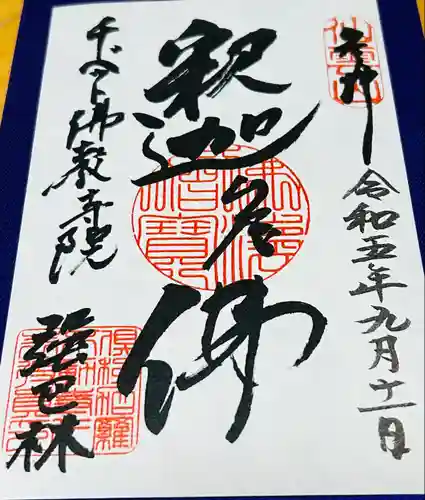 奉拝
令和五年九月十一日
釈迦牟尼佛
チベット佛教寺院
強巴林